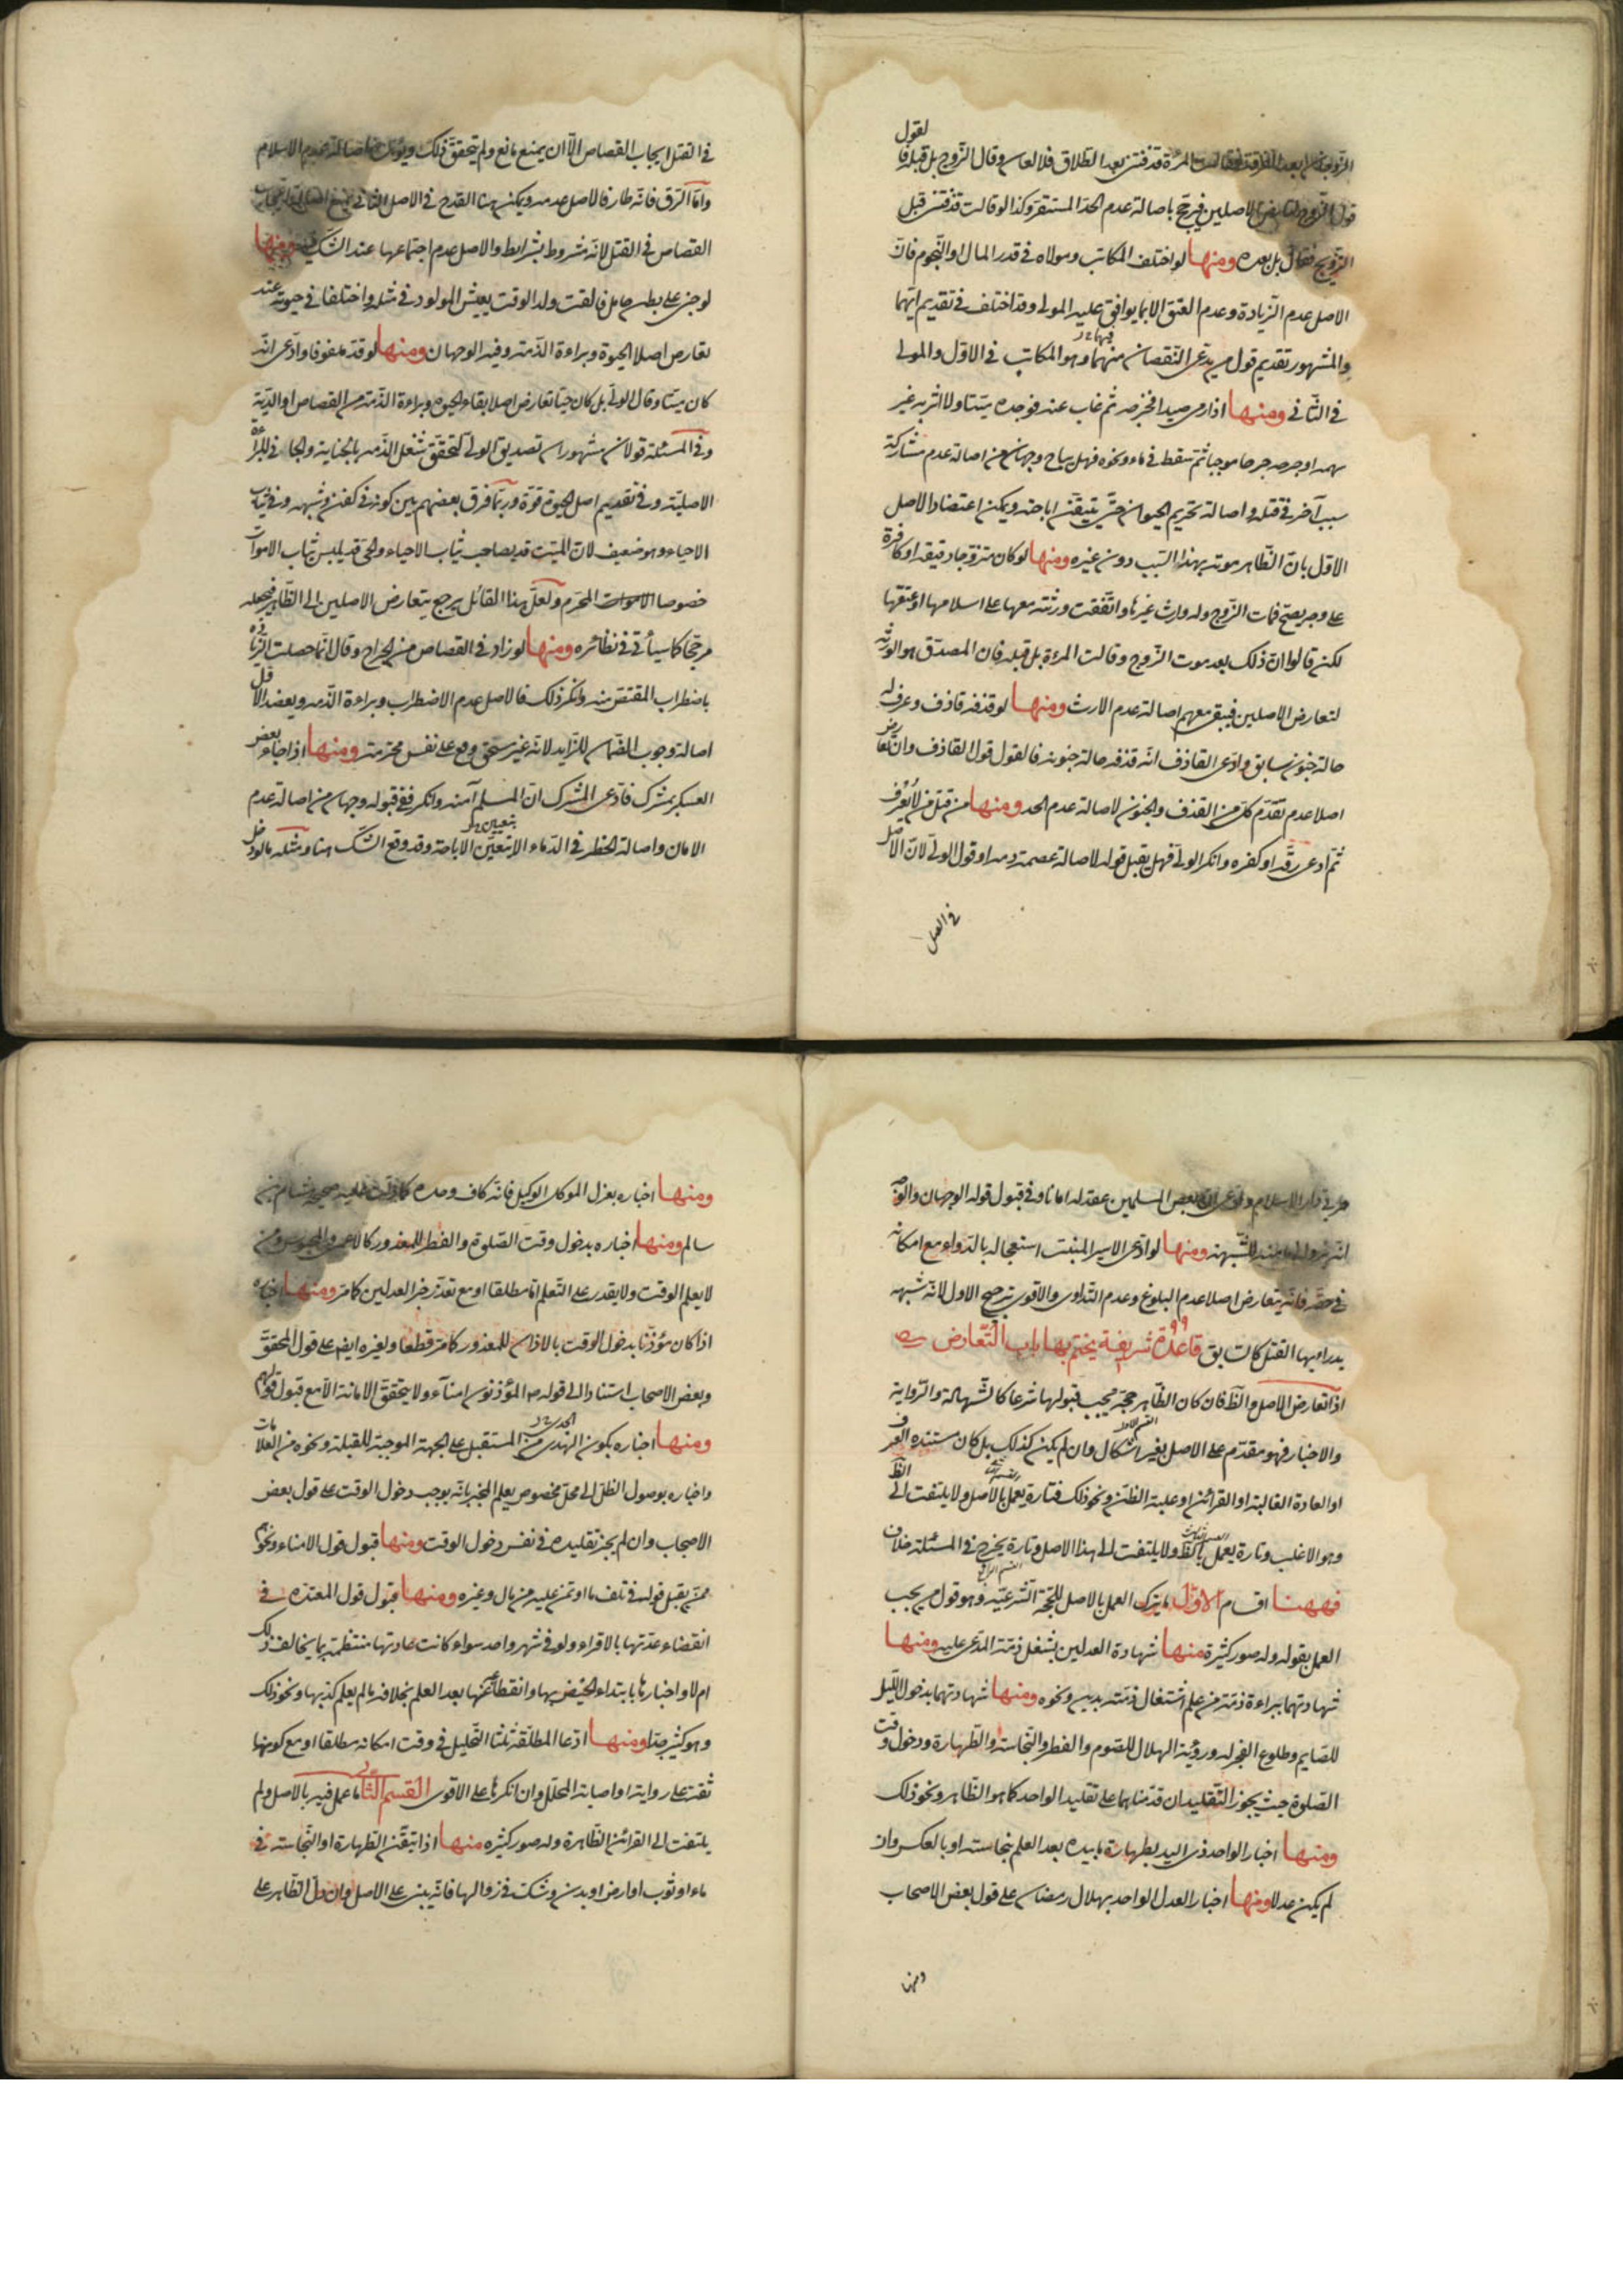 لقول
الزوجان بعد الفرقة فقالت المرأة قذفتنى بعد الطلاق فلا لعان وقال الزوج بل قبله فا
قول الزوج لتعارض الاصلين فيرجح باصالة عدم الحد المستقر وكذا لو قالت قذفتنى قبل
التزويج فقال بل بعده ومنها لو اختلف المكاتب ومولاه فى قدر المال او النجوم فان
الاصل عدم الزيادة وعدم العتق الا بما يوافق عليه المولى وقد اختلف فى تقديم ايهما
والمشهور تقديم قول من يدعى النقصان منهما فيهما وهو المكاتب فى الاول والمولى
فى الثانى ومنها اذا رمى صيدا فجرحه ثم غاب عنه فوجده ميتا ولا اثر به غير
سهمه او جرحه جرحا موجبا ثم سقط فى ماء ونحوه فهل يباح وجهان من اصالة عدم مشاركة
سبب آخر فى قتله واصالة تحريم الحيوان حتى يتيقن اباحته ويمكن اعتضاد الاصل
الاول بان الظاهر موته بهذا السبب دون غيره ومنها لو كان متزوجا رقيقة او كافرة
على وجه يصح فمات الزوج وله وارث غيرها واتفقت ورثته معها على اسلامها او عتقها
لكن قالوا ان ذلك بعد موت الزوج وقالت المرءة بل قبله فان المصدق هو الورثه
لتعارض الاصلين فيبقى معهم اصالة عدم الارث ومنها لو قذفه قاذف وعرف له
حالة جنون سابق وادعى القاذف انه قذفه حالة جنونه فالقول قول القاذف وان تعارض
اصلا عدم تقدم كل من القذف والجنون لاصالة عدم الحد ومنها من قتل من لا يعرف
ثم ادعى رقه او كفره وانكر الولى فهل يقبل قوله لاصالة عصمة دمه او قول الولى لان الاصل
فى القتل
فى القتل ايجاب القصاص الا ان يمنع مانع ولم يتحقق ذلك عدم الاسلام
واما الرق فانه طار فالاصل عدمه ويمكن هنا القدح فى الاصل الثانى
القصاص فى القتل لانه مشروط بشرائط والاصل عدم اجتماعها عند الشك ومنها
لو جنى على بطن حامل فالقت ولد الوقت يعيش المولود فى مثله واختلفا فى حيوته عند
تعارض اصلا الحيوة وبراءة الذمة وفيه الوجهان ومنها لو قد ملفوفا وادعى انه
كان ميتا وقال الولى بل كان حيا تعارض اصلا بقاء الحيوة وبراءة الذمة من القصاص او الدية
وفى المسئلة قولان مشهوران تصديق الولى لتحقق شغل الذمة بالجناية والجانى للبراءة
الاصلية وفى تقديم اصل الحيوة قوة وربما فرق بعضهم بين كونه فى كفن وشبهه وفى ثياب
الاحياء وهو ضعيف لان الميت قد يصاحب ثياب الاحياء والحى قد يلبس ثياب الاموات
خصوصا المحرم ولعل هذا القائل يرجح بتعارض الاصلين الى الظاهر فيجعله
مرجحا كما سيأتى فى نظائره ومنها لو زاد فى القصاص من الجراح وقال انما حصلت الزيادة
باضطراب المقتص منه وانكر ذلك فالاصل عدم الاضطراب وبراءة الذمه ويعضد الاول
اصالة وجوب الضمان للزايد لانه غير مستحق وقع على نفس محترمة ومنها اذا جاء بعض
العسكر بمشرك فادعى المشرك ان المسلم آمنه وانكر ففى قبوله وجهان من اصالة عدم
الامان واصالة الحظر فى الدماء الا بتعيين الاباحة وقد وقع الشك هنا ومثله ما لو دخل
حربى دار الاسلام وادعى ان بعض المسلمين عقد له امانا وفى قبول قوله الوجهان
ومنها لو ادعى الاسير المنبت استعجاله بالدواء مع امكانه
فى حقه فانه يتعارض اصلا عدم البلوغ وعدم التداوى والاقوى ترجيح الاول لانه شبهه
يدراء بها القتل كالسابق قاعدة شريفة يختم بها باب التعارض
اذا تعارض الاصل والظ فان كان الظاهر حجة يجب قبولها شرعا كالشهادة والرواية
والاخبار فهو مقدم على الاصل بغير اشكال وان لم يكن كذلك بل كان مستنده العرف
او العادة الغالبة او القرائن او غلبة الظن ونحو ذلك فتارة يعمل بالاصل ولا يلتفت الى الظ
وهو الاغلب وتارة يعمل بالظ ولا يلتفت الى هذا الاصل وتارة يخرج فى المسئلة خلاف
فههنا اقسام الاول ما يترك العمل بالاصل للحجة الشرعية وهو قول من يجب
العمل بقوله وله صور كثيرة منها شهادة العدلين بشغل ذمة المدعى عليه ومنها
شهادتهما ببراءة ذمة من علم اشتغال ذمته بدين ونحوه ومنها شهادتهما بدخول الليل
للصايم وطلوع الفجر له ورؤية الهلال للصوم والفطر والنجاسة والطهارة ودخول وقت
الصلوة حيث يجوز التقليد ان قدمناهما على تقليد الواحد كما هو الظاهر ونحو ذلك
ومنها اخبار الواحد ذى اليد بطهارة ما بيده بعد العلم بنجاسته او بالعكس وان
لم يكن عدلا ومنها اخبار العدل الواحد بهلال رمضان على قول بعض الاصحاب
ومنها
ومنها اخباره بعزل الموكل الوكيل فانه كاف وحده كما دلت عليه صحيحة هشام بن
سالم ومنها اخباره بدخول وقت الصلوة والفطر للمعذور كالاعمى والمحبوس ومن
لا يعلم الوقت ولا يقدر على التعلم اما مطلقا او مع تعذر خبر العدلين كما مر ومنها اخباره
اذا كان مؤذنا بدخول الوقت بالاذان للمعذور كما مر قطعا ولغيره ايضا على قول المحقق
وبعض الاصحاب استنادا الى قوله المؤذنون امناء ولا يتحقق الامانة الا مع قبول قولهم
ومنها اخباره بكون الهدى من المستقبل على الجهة الموجبة للقبلة ونحوه من العلامات
واخباره بوصول الظل الى محل مخصوص يعلم المخبر بانه يوجب دخول الوقت على قول بعض
الاصحاب وان لم يجز تقليده فى نفس دخول الوقت ومنها قبول قول الامناء ونحوهم
ممن يقبل قوله فى تلف ما اوتمن عليه من مال وغيره ومنها قبول قول المعتدة فى
انقضاء عدتها بالاقراء ولو فى شهر واحد سواء كانت عادتها منتظمة بما يخالف ذلك
ام لا واخبارها بابتداء الحيض بها وانقطاعه عنها بعد العلم بخلافه ما لم يعلم كذبها ونحو ذلك
وهو كثير جدا ومنها ادعا المطلقة ثلثا التحليل فى وقت امكانه مطلقا او مع كونها
ثقة على رواية او اصابة المحلل وان انكرها على الاقوى القسم الثانى ما عمل فيه بالاصل ولم
يلتفت الى القرائن الظاهرة وله صور كثيره منها اذا تيقن الطهارة او النجاسة فى
ماء او ثوب او ارض او بدن وشك فى زوالها فانه يبنى على الاصل وان دل الظاهر على